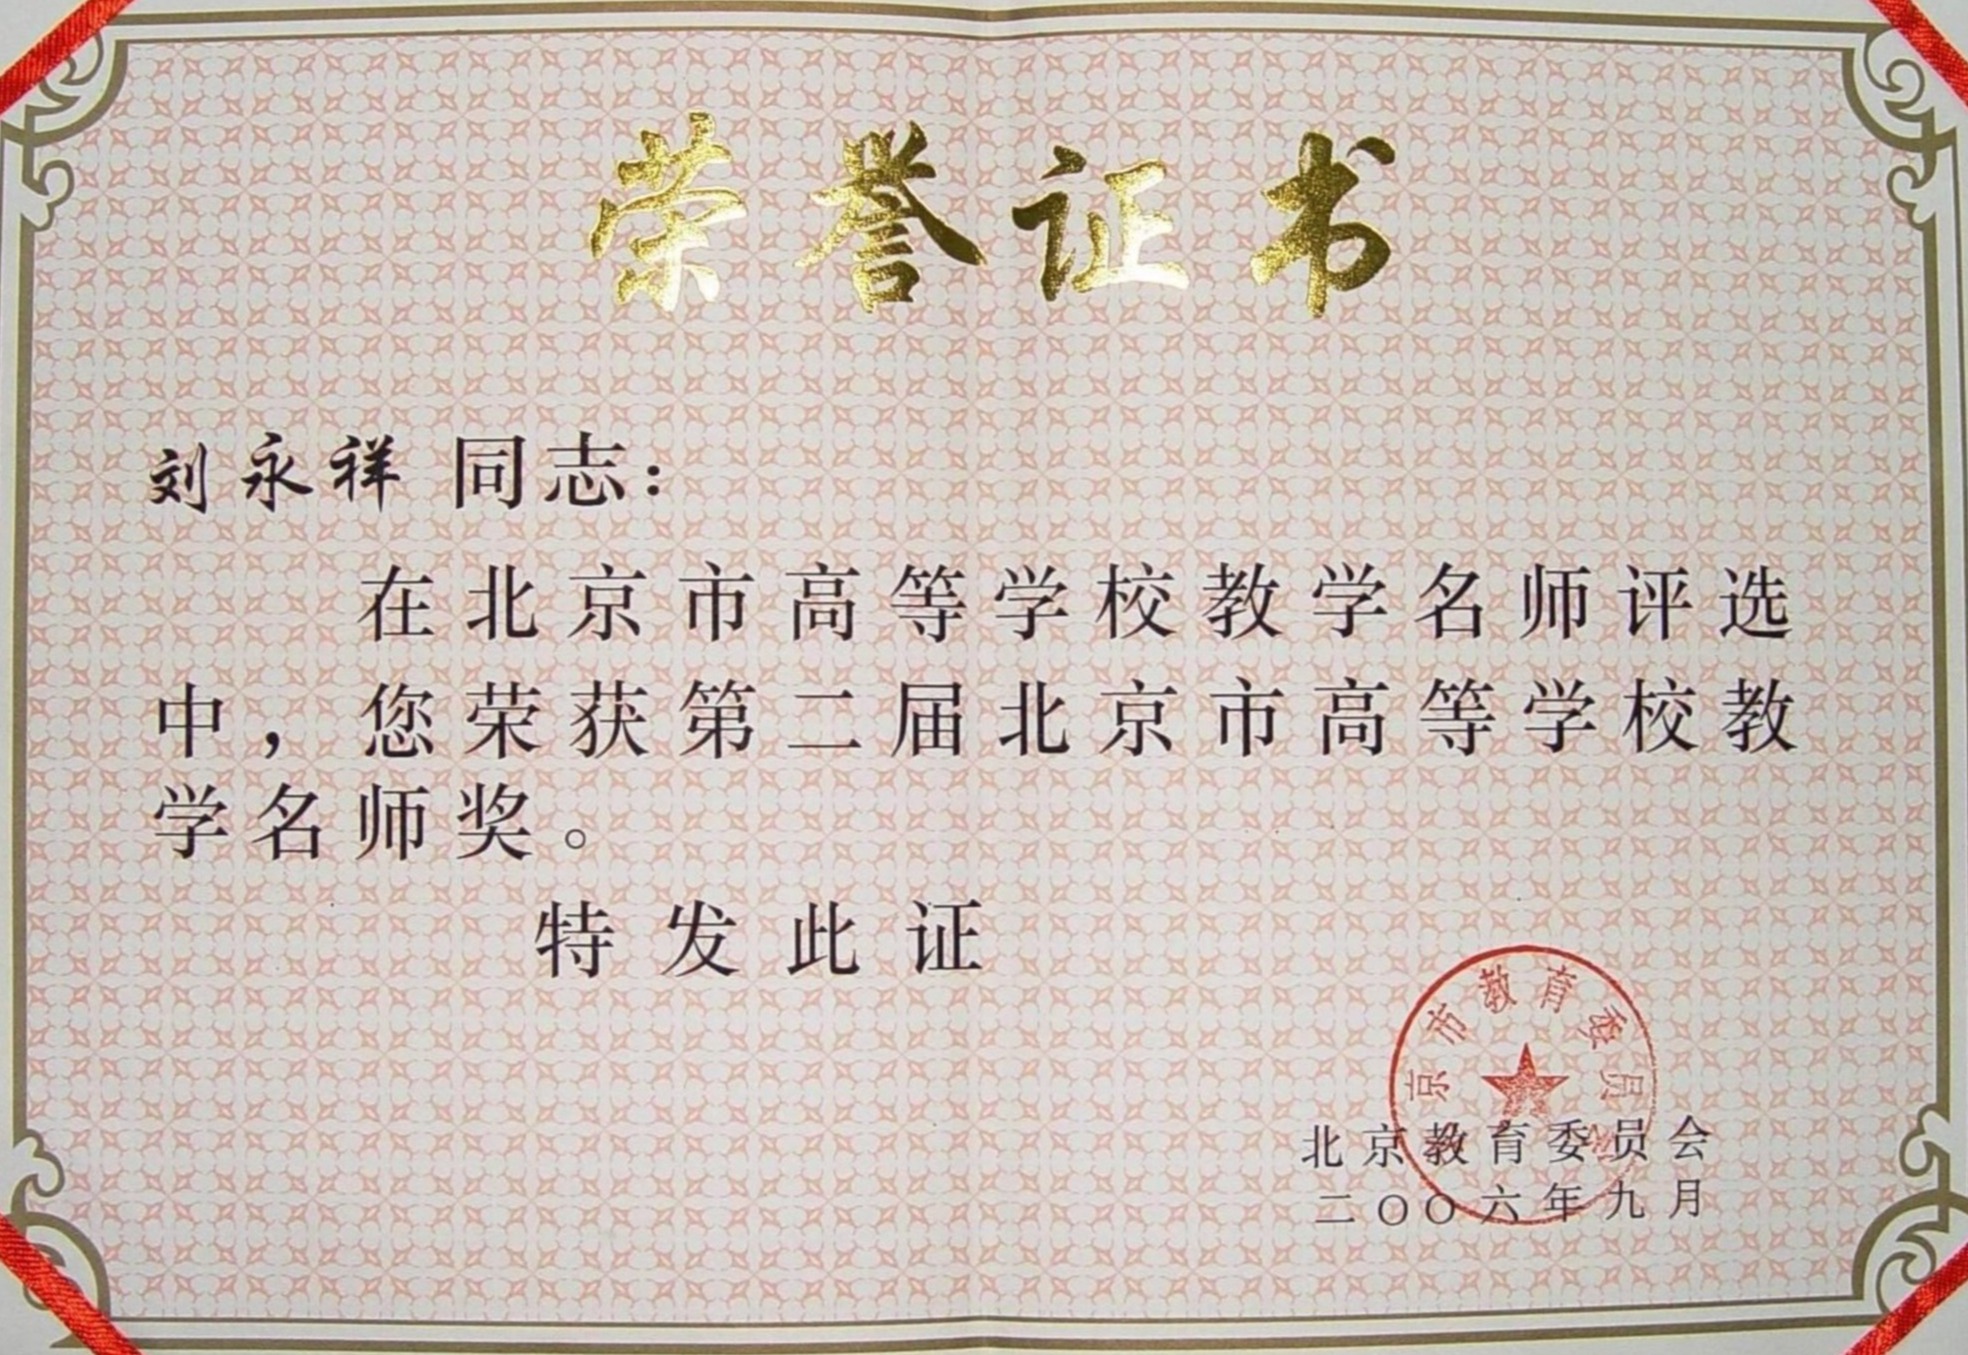 荣誉证书
刘永祥 同志：
在北京市高等学校教学名师评选
中，您荣获第二届北京市高等学校教
学名师奖。
特发此证
京市教育委员
北京教育委员会
二〇〇六年九月